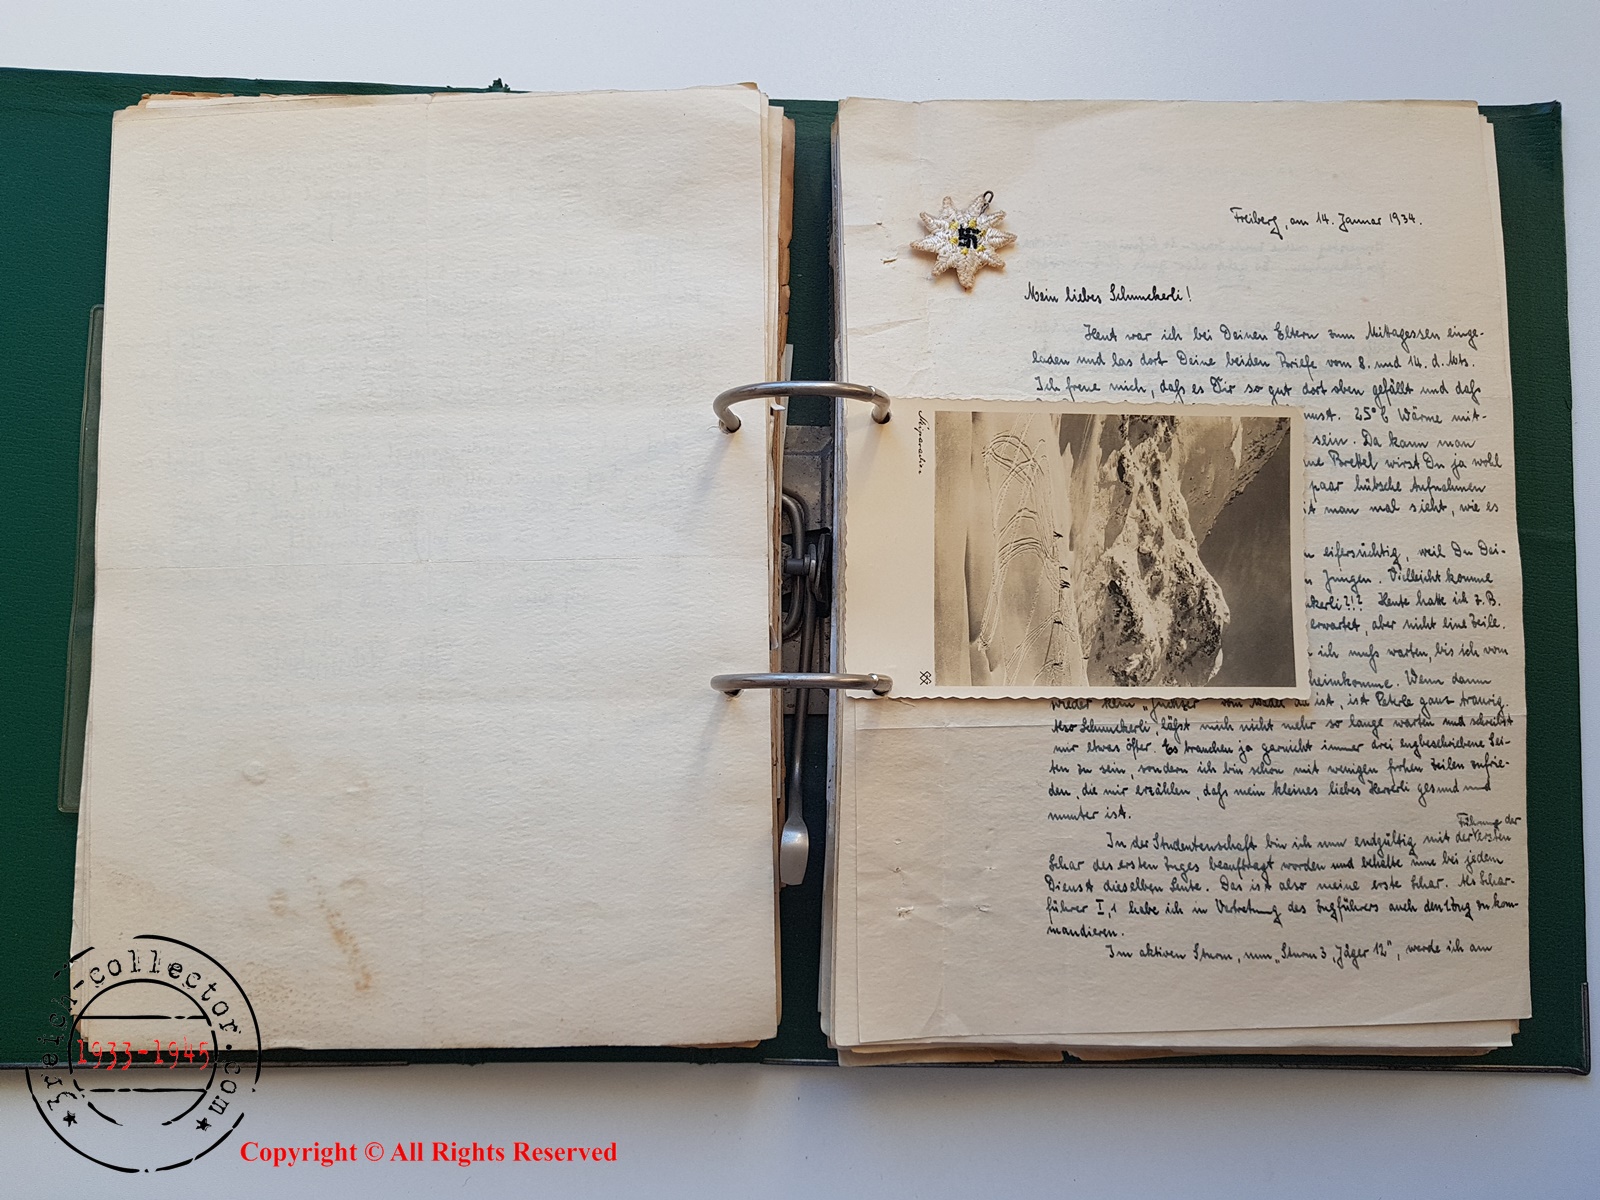 Freiberg, am 14. Januar 1934.
Mein liebes Schmuckerli!
Heut war ich bei Deinen Eltern zum Mittagessen einge-
laden und las dort Deine beiden Briefe vom 8. und 14. d. Mts.
Ich freue mich, daß es Dir so gut dort oben gefällt und daß
25° C Wärme mit-
sein. Da kann man
Brettel wirst Du ja wohl
paar hübsche Aufnahmen
man mal sieht, wie es
eifersüchtig, weil Du Dei-
Jungen. Vielleicht komme
Heute hatte ich z. B.
erwartet, aber nicht eine Zeile.
ich muß warten, bis ich vom
heimkomme. Wenn dann
wieder kein ist, ist Peterle ganz traurig.
Also Schmuckerli, läßt mich nicht mehr so lange warten und schreibst
mir etwas öfter. Es brauchen ja garnicht immer drei engbeschriebene Sei-
ten zu sein, sondern ich bin schon mit wenigen frohen Zeilen zufrie-
den, die mir erzählen, daß mein kleines liebes Herzerli gesund und
munter ist.
In der Studentenschaft bin ich nun endgültig mit der Führung der ersten
Schar des ersten Zuges beauftragt worden und behalte nun bei jedem
Dienst dieselben Leute. Das ist also meine erste Schar. Als Schar-
führer I,1 habe ich in Vertretung des Zugführers auch den Zug zu kom-
mandieren.
Im aktiven Sturm, nun „Sturm 3, Jäger 12", werde ich am
3reich-collector.com
1933-1945
Copyright © All Rights Reserved